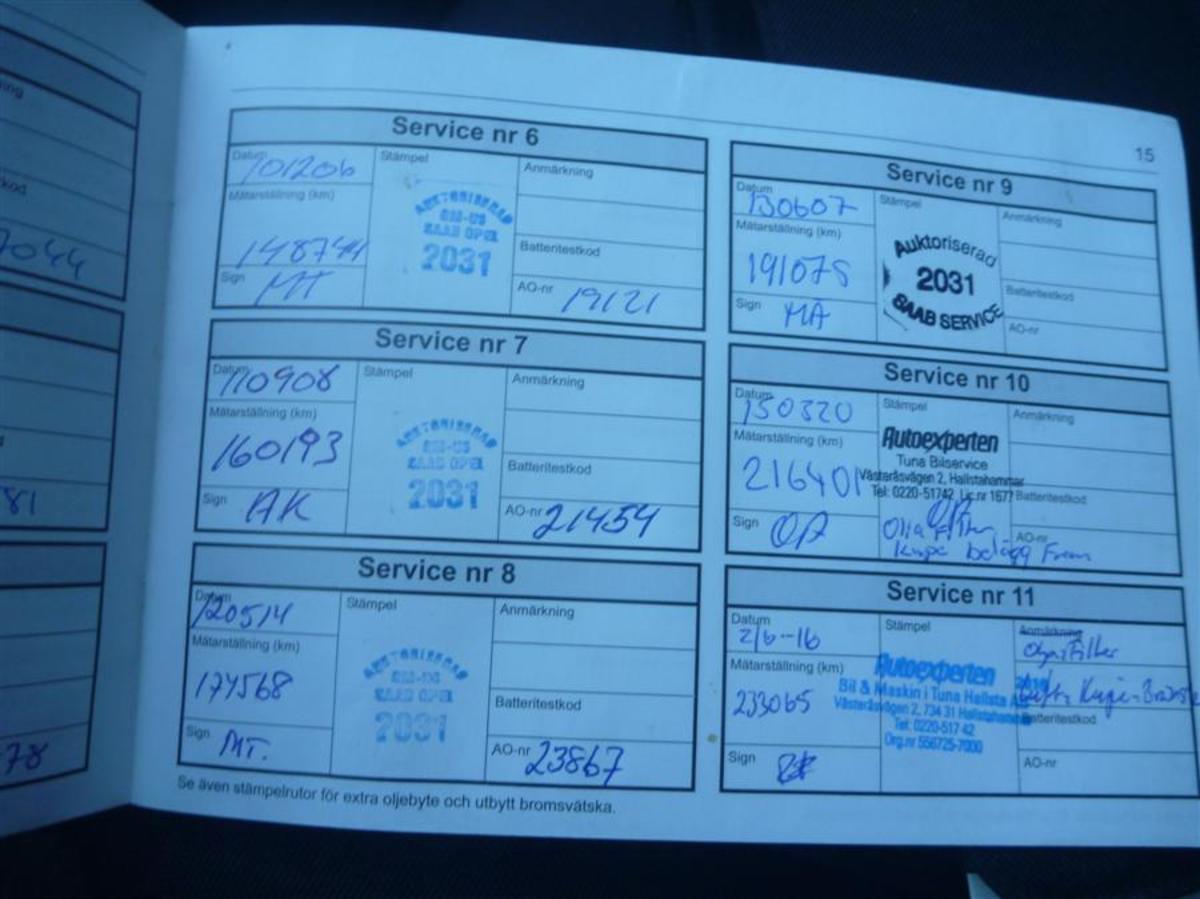 ning
kod
7044
81
78
15
Service nr 6
Datum
101206
Stämpel
Anmärkning
Mätarställning (km)
148744
AUKTORISERAD
SAAB OPEL
2031
Batteritestkod
Sign
MT
AO-nr
19121
Service nr 7
Datum
110908
Stämpel
Anmärkning
Mätarställning (km)
160193
AUKTORISERAD
SAAB OPEL
2031
Batteritestkod
Sign
AK
AO-nr
21454
Service nr 8
Datum
120514
Stämpel
Anmärkning
Mätarställning (km)
174568
AUKTORISERAD
SAAB OPEL
2031
Batteritestkod
Sign
MT.
AO-nr
23867
Service nr 9
Datum
130607
Stämpel
Anmärkning
Mätarställning (km)
191075
Auktoriserad
2031
SAAB SERVICE
Batteritestkod
Sign
MA
AO-nr
Service nr 10
Datum
150320
Stämpel
Anmärkning
Mätarställning (km)
216401
Autoexperten
Tuna Bilservice
Västeråsvägen 2, Hallstahammar
Tel: 0220-51742 Lic.nr 1677
Batteritestkod
Sign
Olja Filter
AO-nr
belägg Fram
Service nr 11
Datum
2/6-16
Stämpel
Anmärkning
Olja Filter
Mätarställning (km)
233065
Autoexperten
Bil & Maskin i Tuna Hallsta
Västeråsvägen 2, 734 31 Hallstahammar
Tel: 0220-517 42
Org.nr 556725-7000
Batteritestkod
Sign
AO-nr
Se även stämpelrutor för extra oljebyte och utbytt bromsvätska.